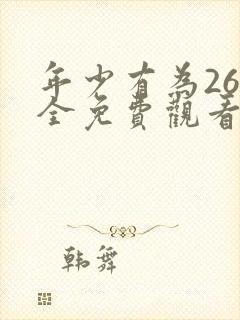 年少有為26
全免費觀看
韩舞